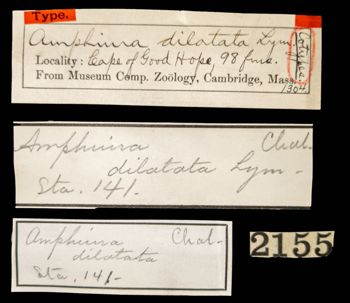 Type.
Amphiura dilatata Lym.
Cotypes
Locality: Cape of Good Hope, 98 fms.
From Museum Comp. Zoölogy, Cambridge, Mass.
1304
Amphiura Chal-
dilatata Lym-
Sta. 141-
Amphiura Chal-
dilatata
Sta. 141-
2155